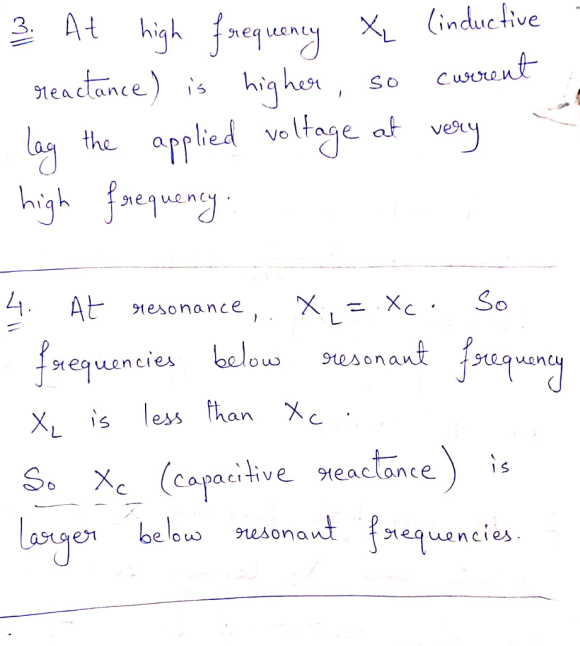 3. At high frequency X_L (inductive
reactance) is higher, so current
lag the applied voltage at very
high frequency.
4. At resonance, X_L = X_C. So
frequencies below resonant frequency
X_L is less than X_C.
So X_C (capacitive reactance) is
larger below resonant frequencies.